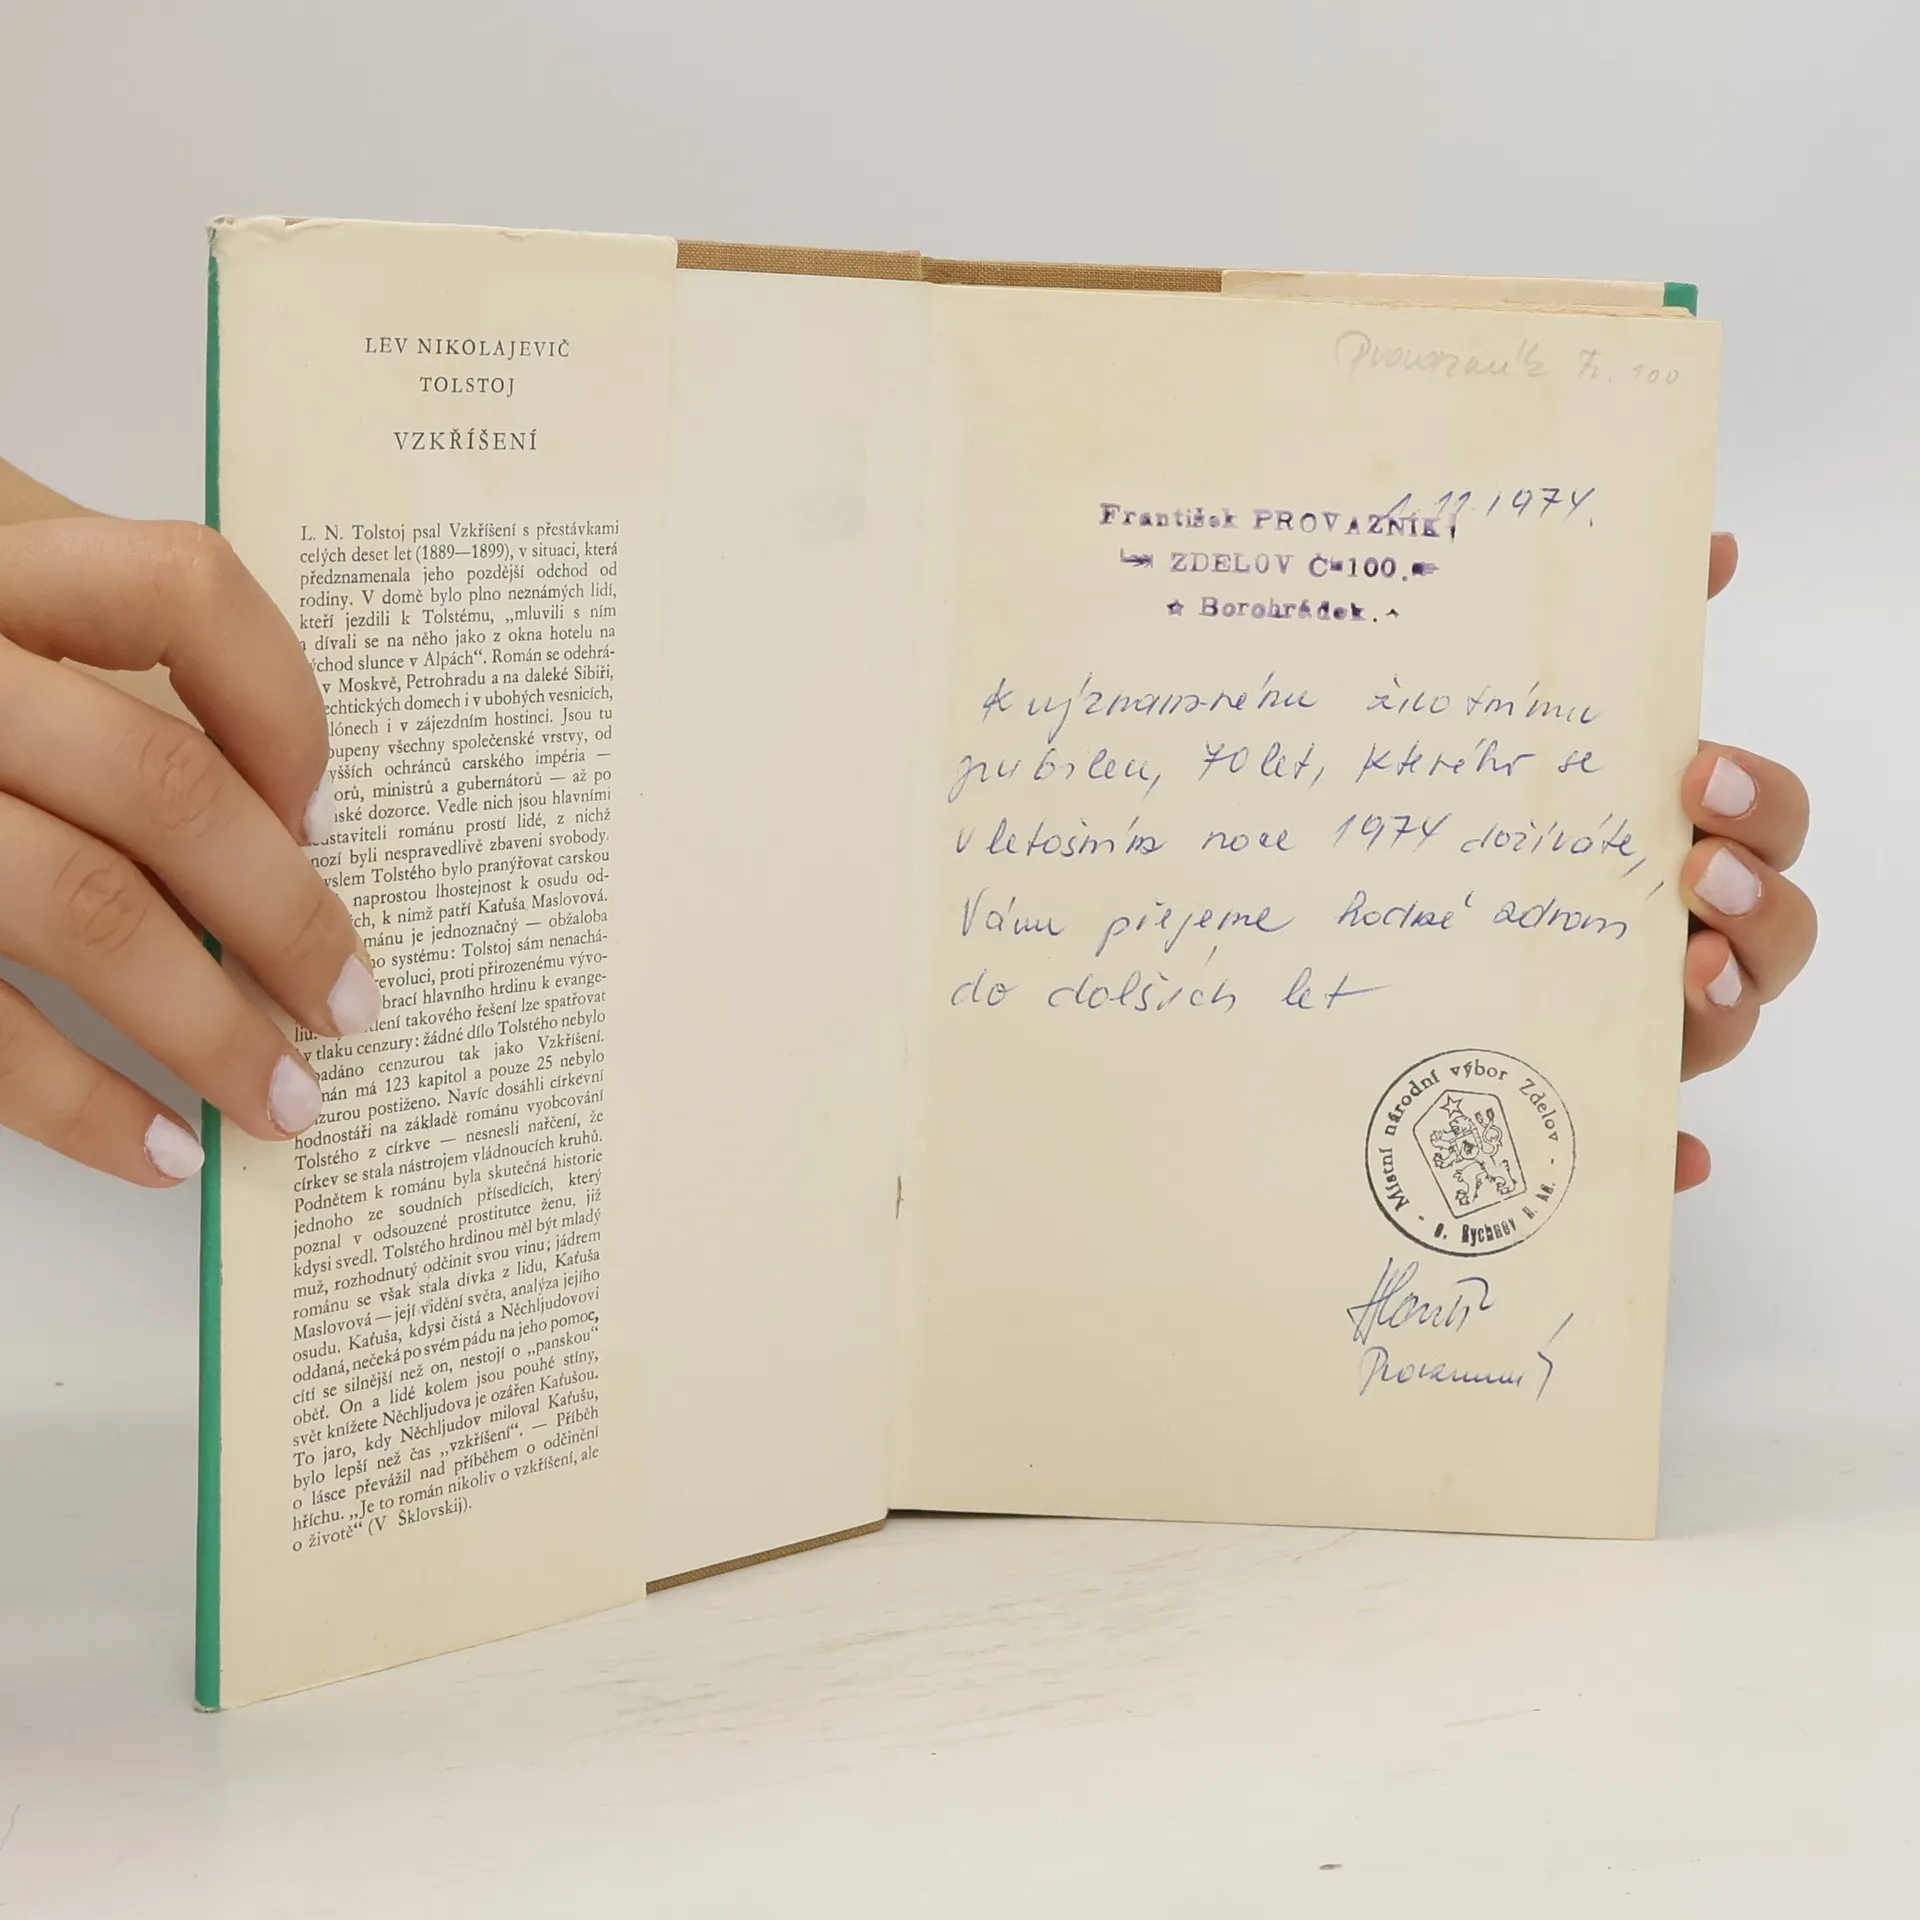 LEV NIKOLAJEVIČ
TOLSTOJ
VZKŘÍŠENÍ
L. N. Tolstoj psal Vzkříšení s přestávkami
celých deset let (1889—1899), v situaci, která
předznamenala jeho pozdější odchod od
rodiny. V domě bylo plno neznámých lidí,
kteří jezdili k Tolstému, „mluvili s ním
a dívali se na něho jako z okna hotelu na
východ slunce v Alpách“. Román se odehrá-
v Moskvě, Petrohradu a na daleké Sibiři,
echtických domech i v ubohých vesnicích,
lónech i v zájezdním hostinci. Jsou tu
oupeny všechny společenské vrstvy, od
yšších ochránců carského impéria —
orů, ministrů a gubernátorů — až po
ské dozorce. Vedle nich jsou hlavními
dstaviteli románu prostí lidé, z nichž
nozí byli nespravedlivě zbaveni svobody.
yslem Tolstého bylo pranýřovat carskou
naprostou lhostejnost k osudu od-
ch, k nimž patří Kaťuša Maslovová.
mánu je jednoznačný — obžaloba
ho systému: Tolstoj sám nenachá-
evoluci, proti přirozenému vývo-
brací hlavního hrdinu k evange-
liu. tlení takového řešení lze spatřovat
v tlaku cenzury: žádné dílo Tolstého nebylo
padáno cenzurou tak jako Vzkříšení.
mán má 123 kapitol a pouze 25 nebylo
nzurou postiženo. Navíc dosáhli církevní
hodnostáři na základě románu vyobcování
Tolstého z církve — nesnesli nařčení, že
církev se stala nástrojem vládnoucích kruhů.
Podnětem k románu byla skutečná historie
jednoho ze soudních přísedících, který
poznal v odsouzené prostitutce ženu, již
kdysi svedl. Tolstého hrdinou měl být mladý
muž, rozhodnutý odčinit svou vinu; jádrem
románu se však stala dívka z lidu, Kaťuša
Maslovová — její vidění světa, analýza jejího
osudu. Kaťuša, kdysi čistá a Něchljudovovi
oddaná, nečeká po svém pádu na jeho pomoc,
cítí se silnější než on, nestojí o „panskou“
oběť. On a lidé kolem jsou pouhé stíny,
svět knížete Něchljudova je ozářen Kaťušou.
To jaro, kdy Něchljudov miloval Kaťušu,
bylo lepší než čas „vzkříšení“. — Příběh
o lásce převážil nad příběhem o odčinění
hříchu. „Je to román nikoliv o vzkříšení, ale
o životě“ (V Šklovskij).
Provazník Fr. 100
1.11.1974.
František PROVAZNÍK
ZDELOV Č 100.
☆ Borohrádek.
K významnému životnímu
jubileu, 70 let, kterého se
v letošním roce 1974 dožíváte,
Vám přejeme hodně zdraví
do dalších let
Místní národní výbor Zdelov -
o. Rychnov n. Kn. -
Provazník